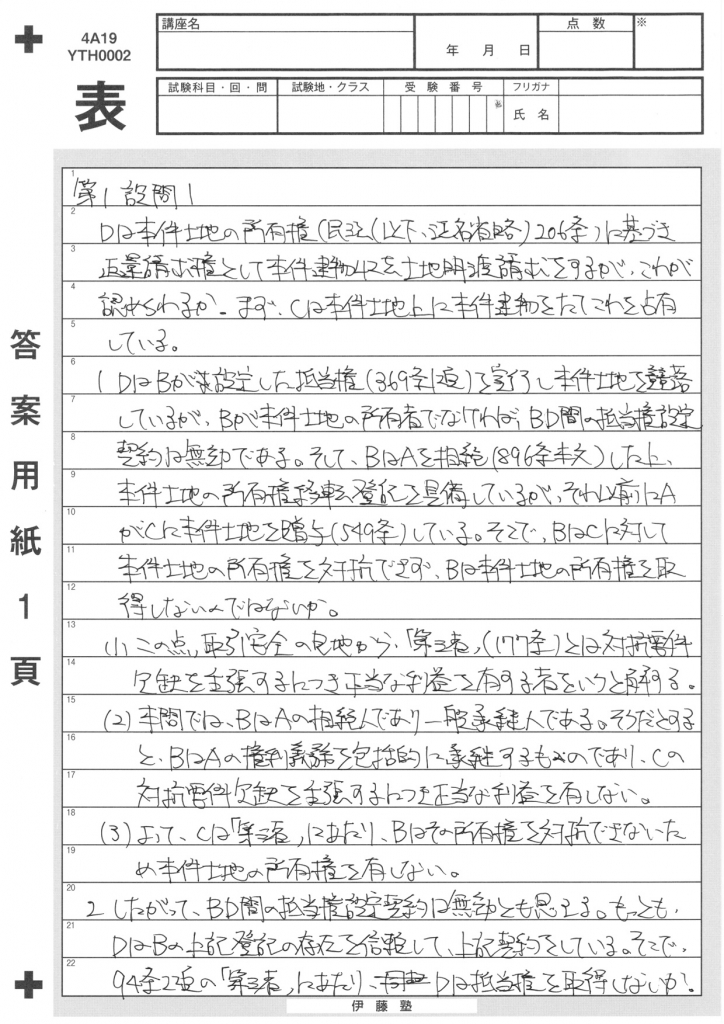 4A19
YTH0002
表
講座名
年 月 日
点 数
※
試験科目・回・問
試験地・クラス
受 験 番 号
※
フリガナ
氏 名
答案用紙1頁
1 第1 設問1
2 Dは本件土地の所有権(民法(以下、法名省略)206条)に基づき
3 返還請求権として本件建物収去土地明渡請求をするが、これが
4 認められるか。まず、Cは本件土地上に本件建物をたてこれを占有
5 している。
6 1 DはBが設定した抵当権(369条1項)を実行し本件土地を競落
7 しているが、Bが本件土地の所有者でなければ、BD間の抵当権設定
8 契約は無効である。そして、BはAを相続(896条本文)した上、
9 本件土地の所有権移転登記を具備しているが、それ以前にA
10 がCに本件土地を贈与(549条)している。そこで、BはCに対して
11 本件土地の所有権を対抗できず、Bは本件土地の所有権を取
12 得しないのではないか。
13 (1) この点、取引安全の見地から、「第三者」(177条)とは対抗要件
14 欠缺を主張するにつき正当な利益を有する者をいうと解する。
15 (2) 本問では、BはAの相続人であり一般承継人である。そうだとする
16 と、BはAの権利義務を包括的に承継するものであり、Cの
17 対抗要件欠缺を主張するにつき正当な利益を有しない。
18 (3) よって、Cは「第三者」にあたり、Bはその所有権を対抗できないた
19 め本件土地の所有権を有しない。
20 2 したがって、BD間の抵当権設定契約は無効とも思える。もっとも、
21 DはBの上記登記の存在を信頼して、上記契約をしている。そこで、
22 94条2項の「第三者」にあたり、Dは抵当権を取得しないか。
伊藤塾